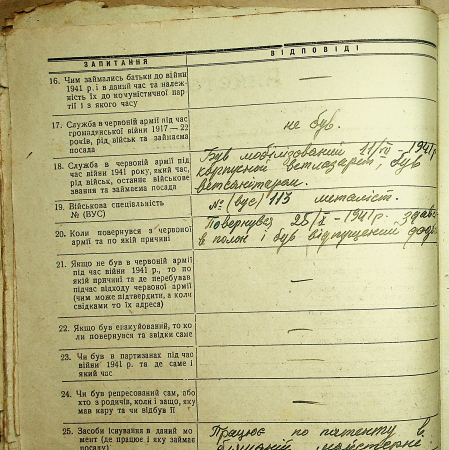 ЗАПИТАННЯ
ВІДПОВІДІ
16. Чим займались батьки до війни
1941 р. і в даний час та належ-
ність їх до комуністичної пар-
тії і з якого часу
—
17. Служба в червоній армії під час
громадянської війни 1917 — 22
років, рід, військ та займаєма
посада
не був.
18. Служба в червоній армії під
час війни 1941 року, який час,
рід військ, останнє військове
звання та займаєма посада
Був мобілізований 11/IV — 1941 р.
ветлазарет, був
ветсанітаром.
19. Військова спеціальність
№ (ВУС)
№ (вус) 113 металіст.
20. Коли повернувся з червоної
армії та по якій причині
Повернувся 25/X — 1941 р. здав
в полон і був відпущений
21. Якщо не був в червоній армії
під час війни 1941 р., то по
якій причині та де перебував
підчас відходу червоної армії
(чим може підтвердити, а коли
свідками то їх адреса)
—
22. Якщо був евакуйований, то ко
ли повернувся та звідки саме
—
23. Чи був в партизанах під час
війни 1941 р. та де саме і
який час
—
24. Чи був репресований сам, або
хто з родичів, коли і защо, яку
мав кару та чи відбув її
—
25. Засоби існування в даний мо
мент (де працює і яку займає
посаду)
Працює по патенту в
майстерне